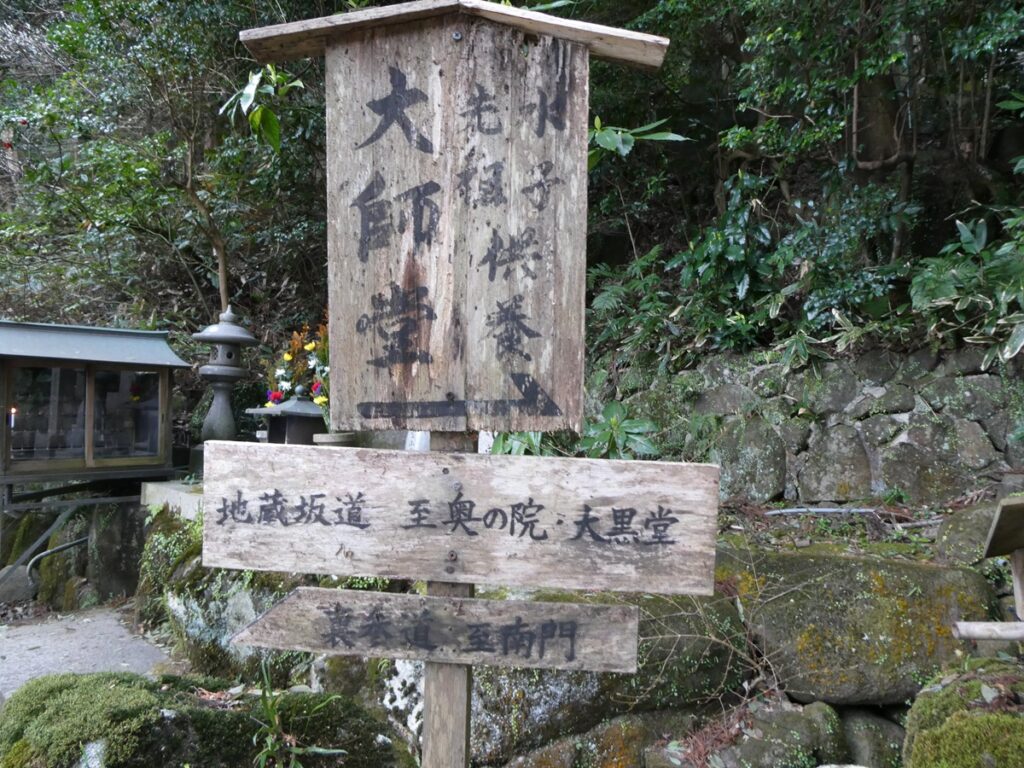 水子供養
先祖
大師堂
地蔵坂道 至奥の院・大黒堂
裏参道・至南門